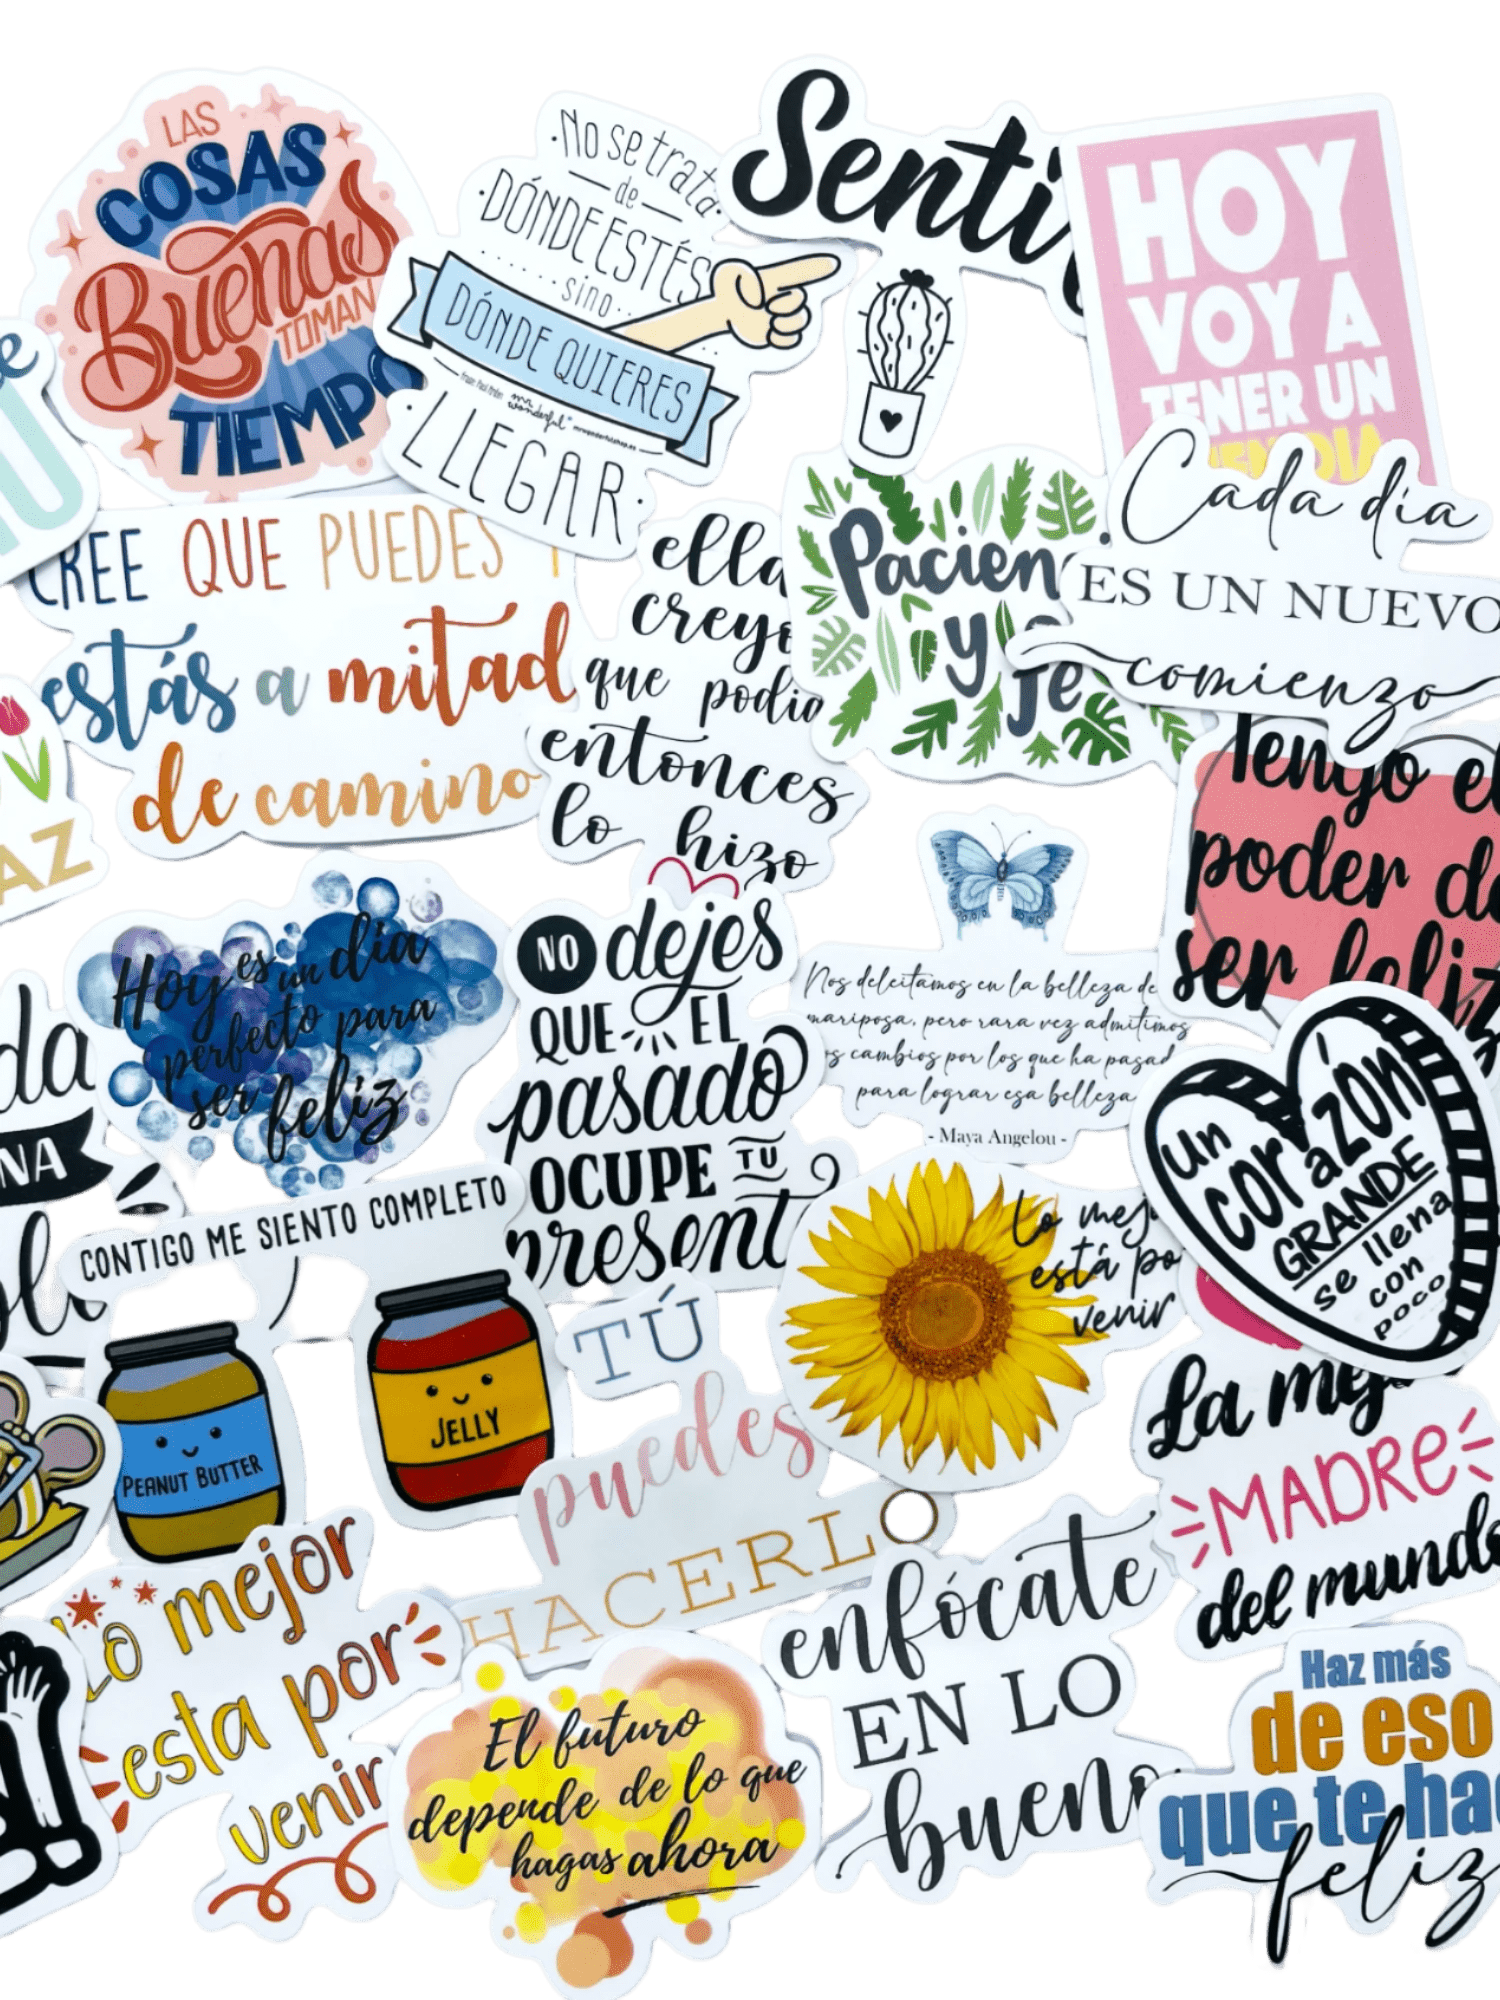 LAS
COSAS
Buenas
TOMAN
TIEMPO
No se trata
de
DÓNDE ESTÉS
sino
DÓNDE QUIERES
mr. wonderful
LLEGAR
HOY
VOY A
TENER UN
CREE QUE PUEDES Y
estás a mitad
de camino
ella
creyó
que podía
entonces
lo hizo
y
Cada día
ES UN NUEVO
comienzo
Tengo el
poder de
ser feliz
Hoy es un día
perfecto para
ser feliz
NO dejes
QUE EL
pasado
OCUPE TU
presente
Nos deleitamos en la belleza de
mariposa, pero rara vez admitimos
cambios por los que ha pasad
para lograr esa belleza
- Maya Angelou -
un
corazón
GRANDE
se llena
con
poco
CONTIGO ME SIENTO COMPLETO
PEANUT BUTTER
JELLY
TÚ
puedes
HACERLO
Lo mej
está po
venir
La mej
MADRE
del mundo
Lo mejor
esta por
venir
El futuro
depende de lo que
hagas ahora
enfócate
EN LO
bueno
Haz más
de eso
que te ha
feliz